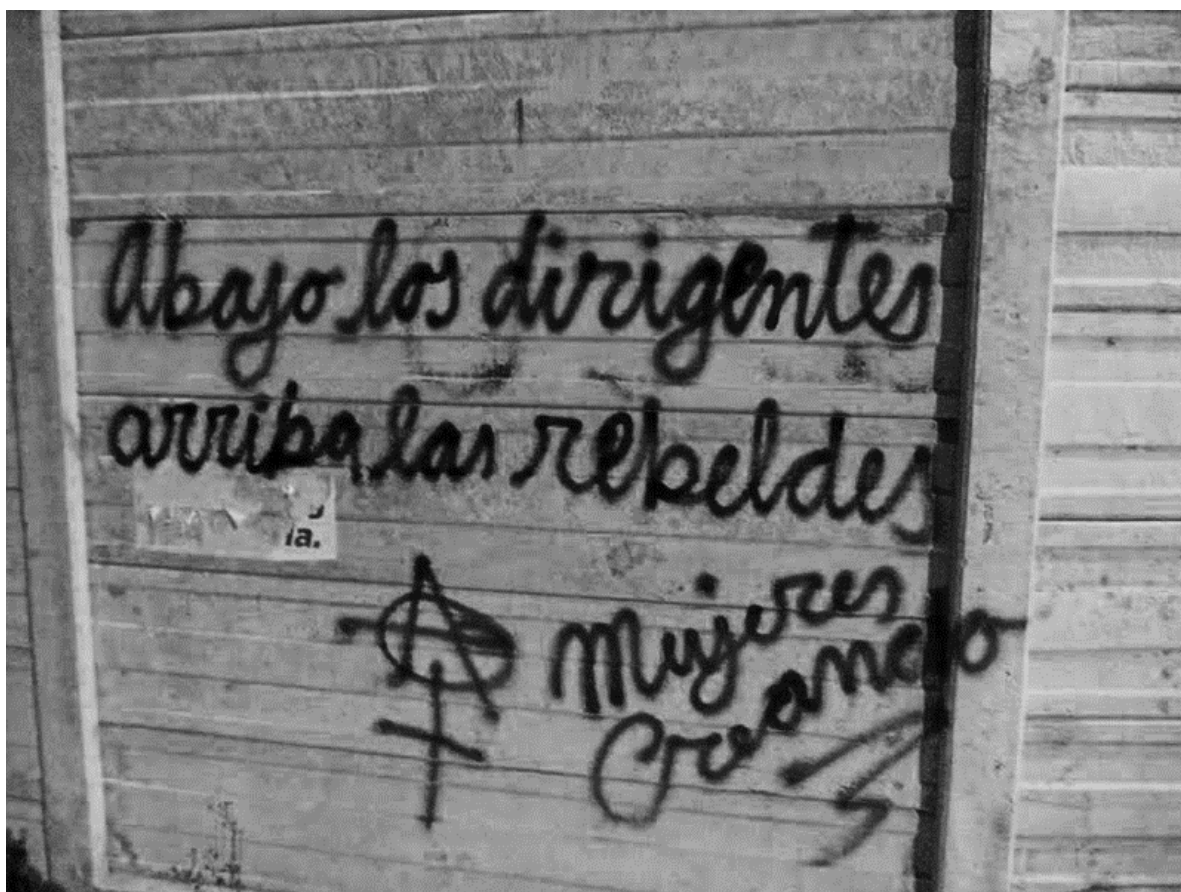 Abajo los dirigentes
arriba las rebeldes
ia.
Mujeres
Creando